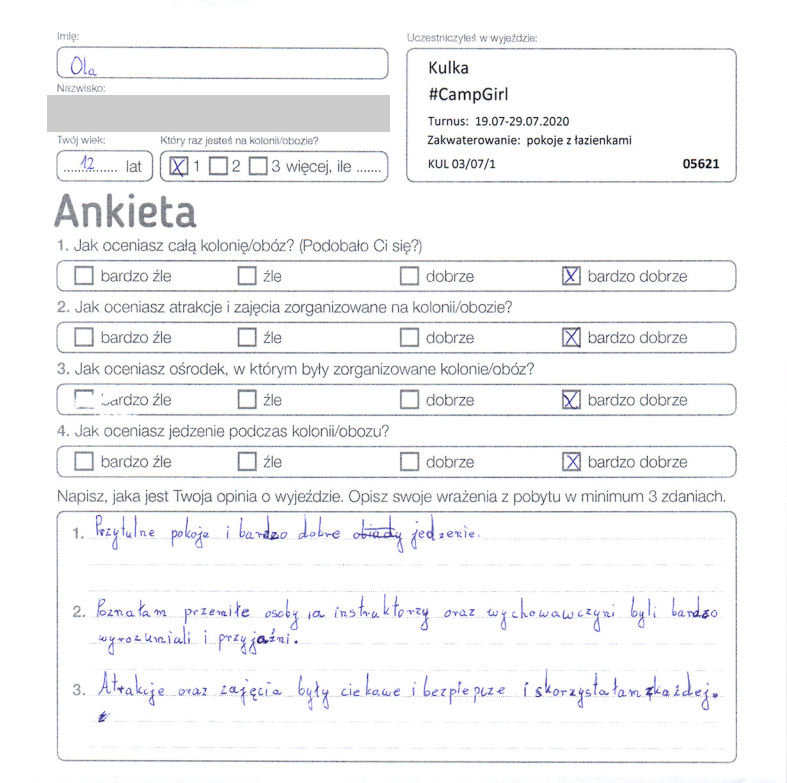 Imię:
Ola
Nazwisko:
Twój wiek:
Który raz jesteś na kolonii/obozie?
12 lat
X 1 2 3 więcej, ile .......
Uczestniczyłeś w wyjeździe:
Kulka
#CampGirl
Turnus: 19.07-29.07.2020
Zakwaterowanie: pokoje z łazienkami
KUL 03/07/1 05621
Ankieta
1. Jak oceniasz całą kolonię/obóz? (Podobało Ci się?)
bardzo źle źle dobrze X bardzo dobrze
2. Jak oceniasz atrakcje i zajęcia zorganizowane na kolonii/obozie?
bardzo źle źle dobrze X bardzo dobrze
3. Jak oceniasz ośrodek, w którym były zorganizowane kolonie/obóz?
bardzo źle źle dobrze X bardzo dobrze
4. Jak oceniasz jedzenie podczas kolonii/obozu?
bardzo źle źle dobrze X bardzo dobrze
Napisz, jaka jest Twoja opinia o wyjeździe. Opisz swoje wrażenia z pobytu w minimum 3 zdaniach.
1. Przytulne pokoje i bardzo dobre obiady jedzenie.
2. Poznałam przemiłe osoby, a instruktorzy oraz wychowawczyni byli bardzo
wyrozumiali i przyjaźni.
3. Atrakcje oraz zajęcia były ciekawe i bezpiecze i skorzystałam z każdej.